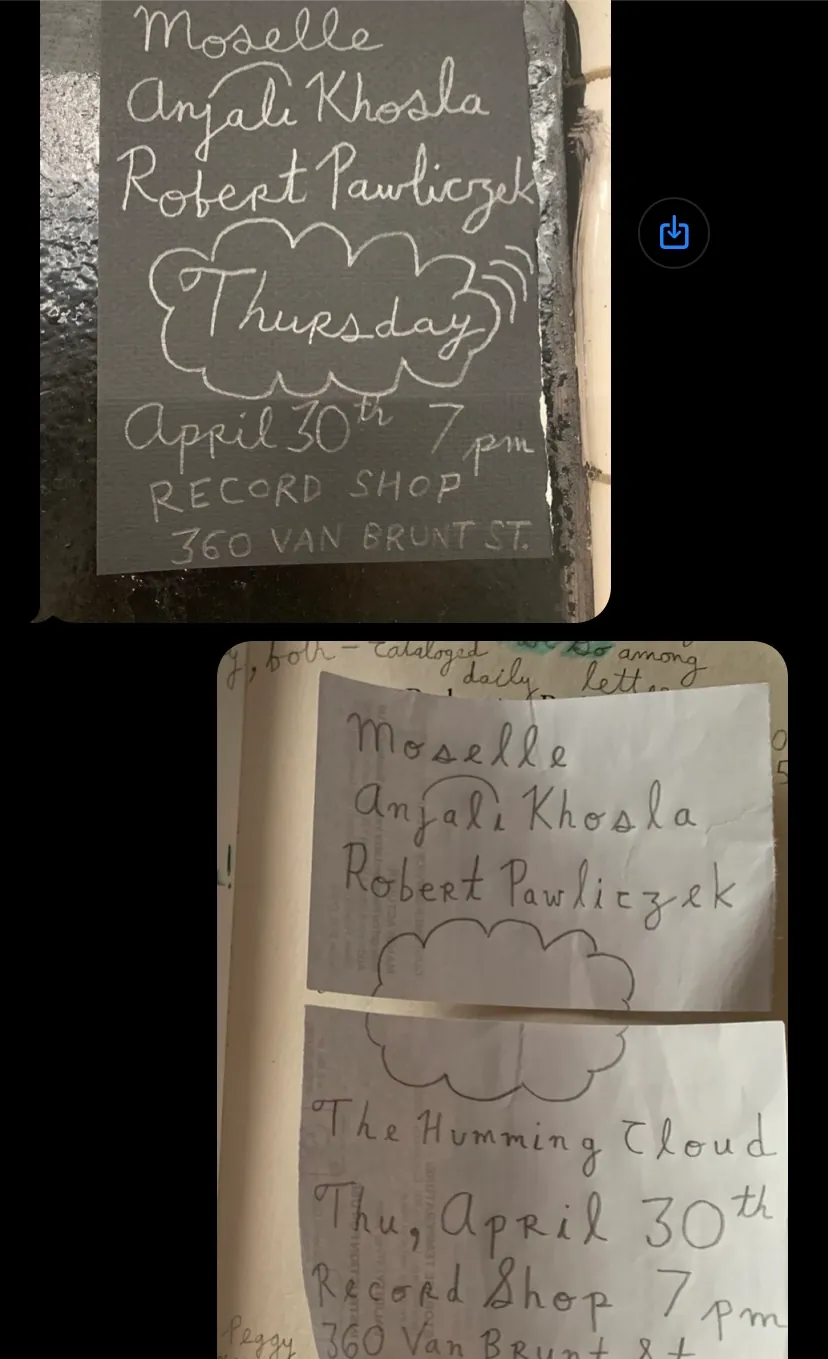 Moselle
Anjali Khosla
Robert Pawliczek
Thursday
April 30th 7 pm
RECORD SHOP
360 VAN BRUNT ST.
y, both - Cataloged among
daily
Moselle
Anjali Khosla
Robert Pawliczek
The Humming Cloud
Thu, April 30th
Record Shop 7 pm
360 Van Brunt St
Peggy